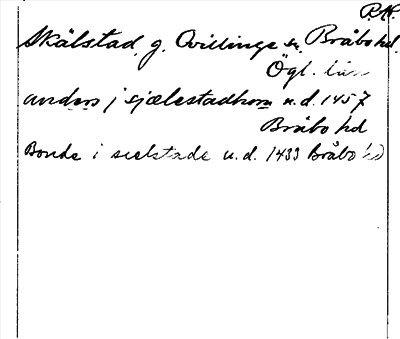 P.H.
Skälstad, g. Qvillinge sn. Bråbo hd.
Ögl. län
anders j sjælestadhom u.d. 1457
Bråbo hd
Bonde i selstade u.d. 1433 Bråbo hd